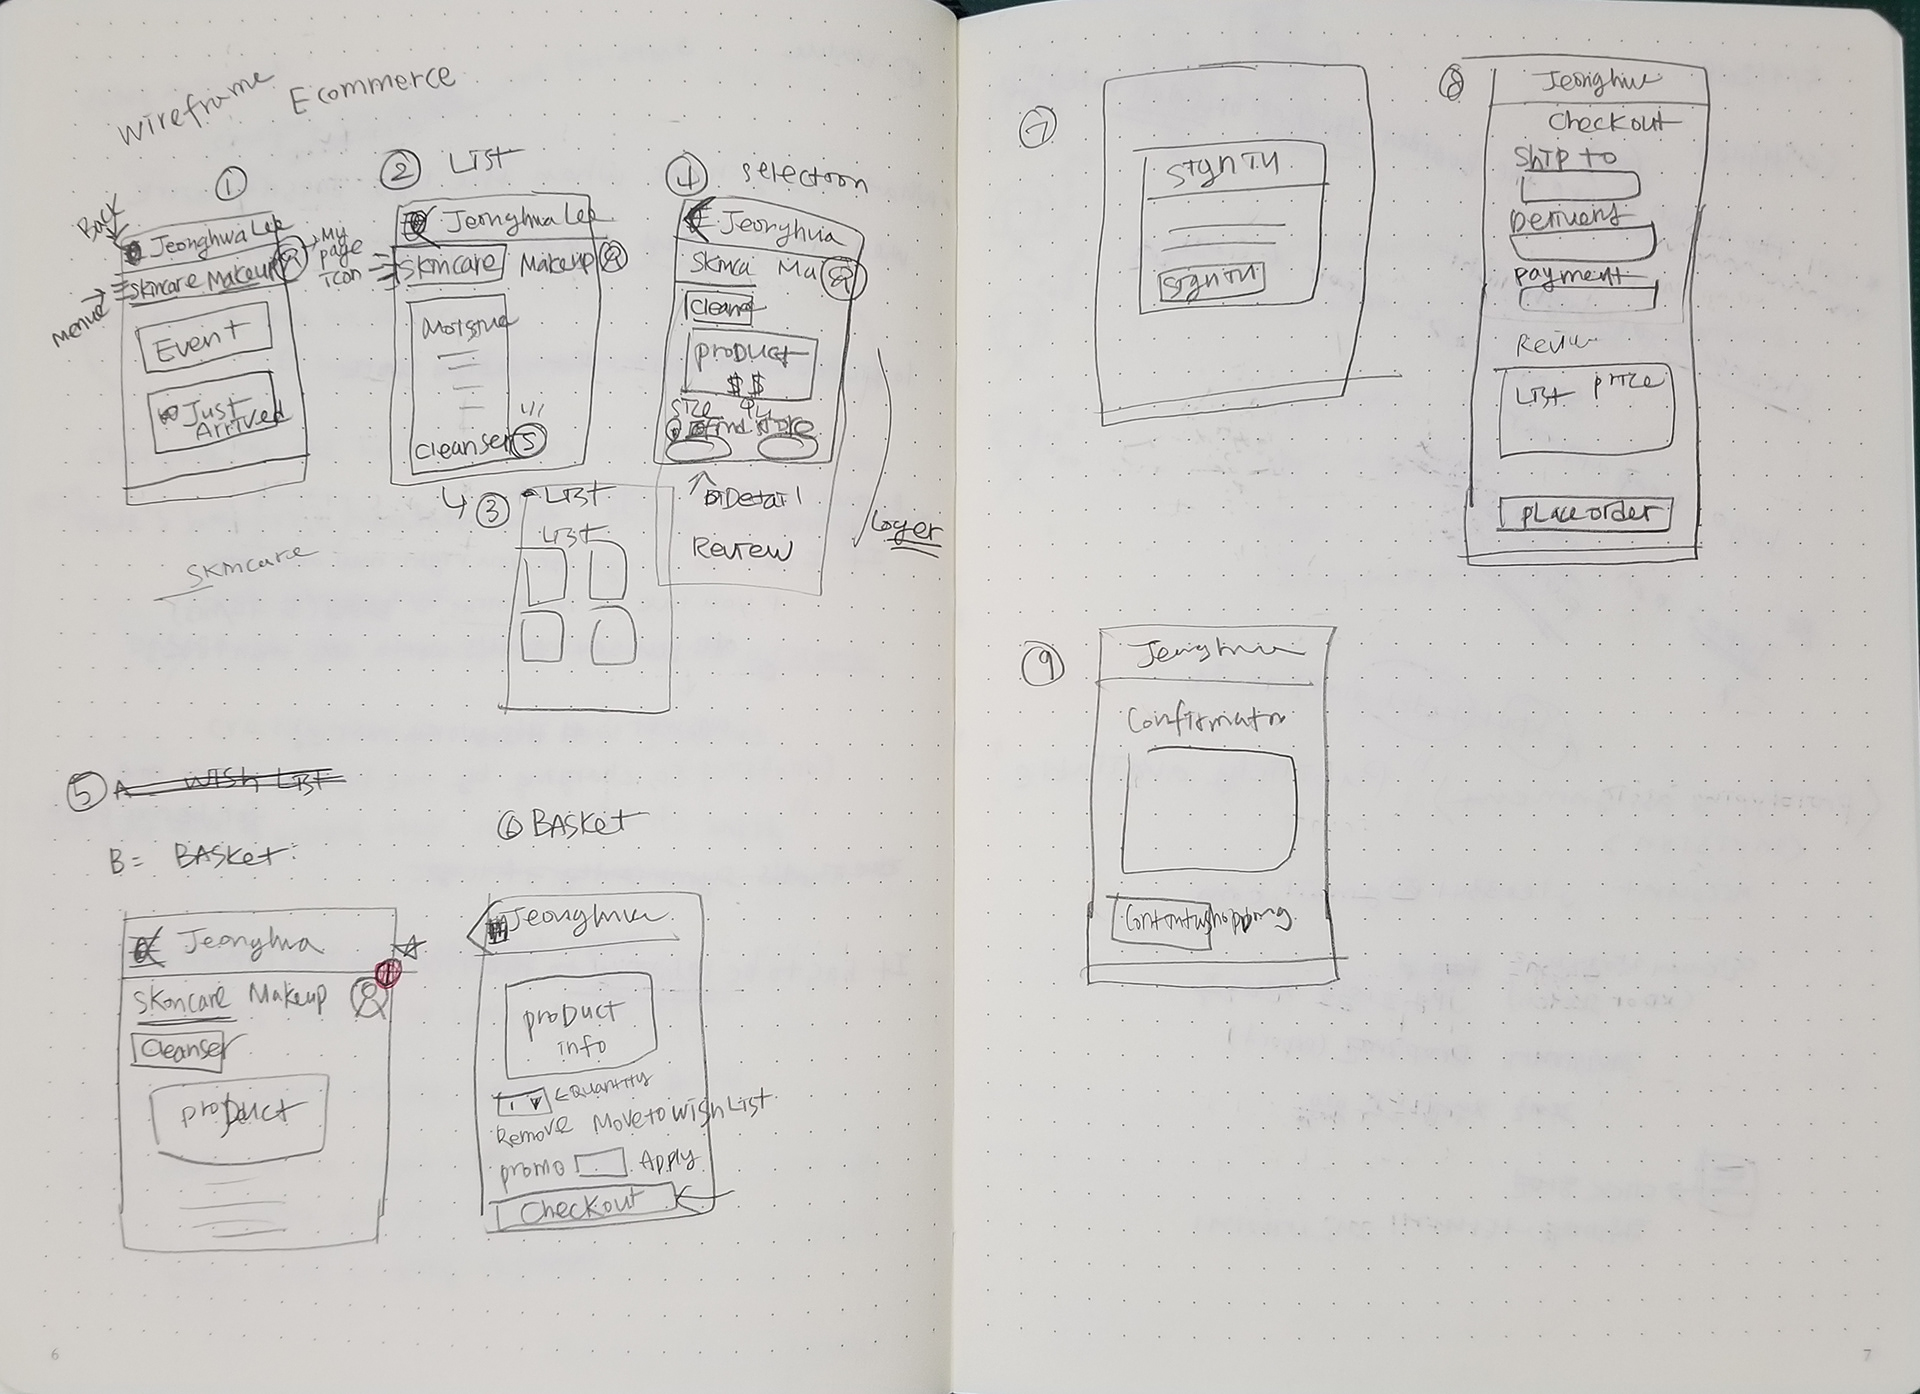 Wireframe Ecommerce
①
Back
Jeonghwa Lee
My page icon
Skincare Makeup
Menue
Event
Just Arrived
② LIST
Jeonghwa Lee
Skincare Makeup
Moistue
Cleanser 5
③ LIST
LIST
④ selection
Jeonghwa
Skinca Ma
Cleane
product
$ $
size
find store
Detail
Review
Layer
Skincare
⑤ A WISH LIST
B = BASKet
Jeonghwa
Skincare Makeup
Cleanser
product
⑥ BASKet
Jeonghwa
product info
1 Quantity
Remove Move to wish List
promo Apply
Checkout
6
⑦
Sign in
Sign in
⑧
Jeonghwa
Checkout
Ship to
Delivery
payment
Review
LIST price
place order
⑨
Jeonghwa
Confirmation
Continue shopping
7